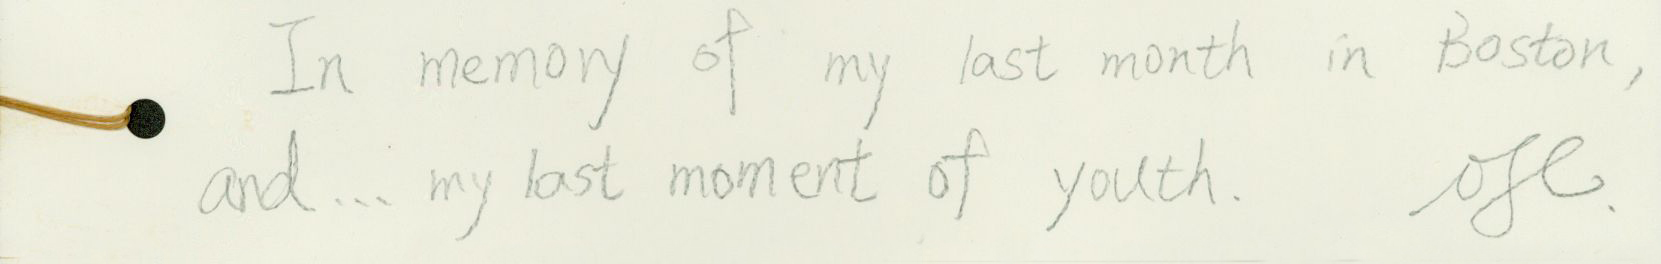 In memory of my last month in Boston,
and... my last moment of youth.